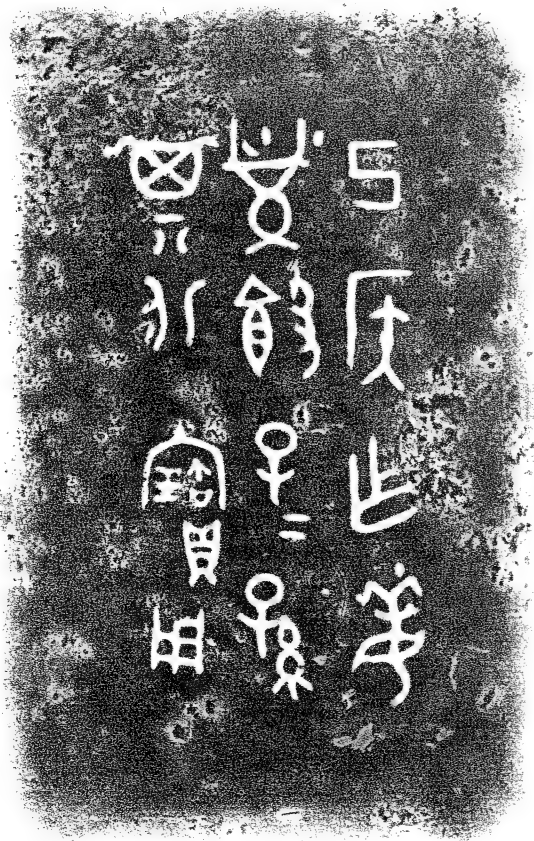 己侯乍姜縈𣪘
子＝孫
其永寶用